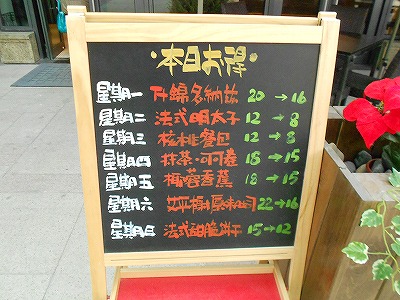 本日お得
星期一 升綿多納滋 20→16
星期二 法式明太子 12→8
星期三 核桃餐包 12→8
星期四 抹茶·可可麦 18→15
星期五 椰蓉香蕉 18→15
星期六 原味吐司 22→16
星期日 法式甜脆饼干 15→12